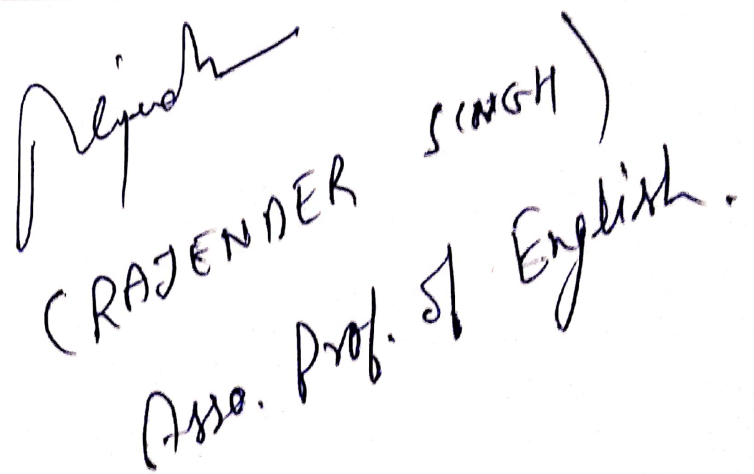 (RAJENDER SINGH)
Asso. Prof. of English.